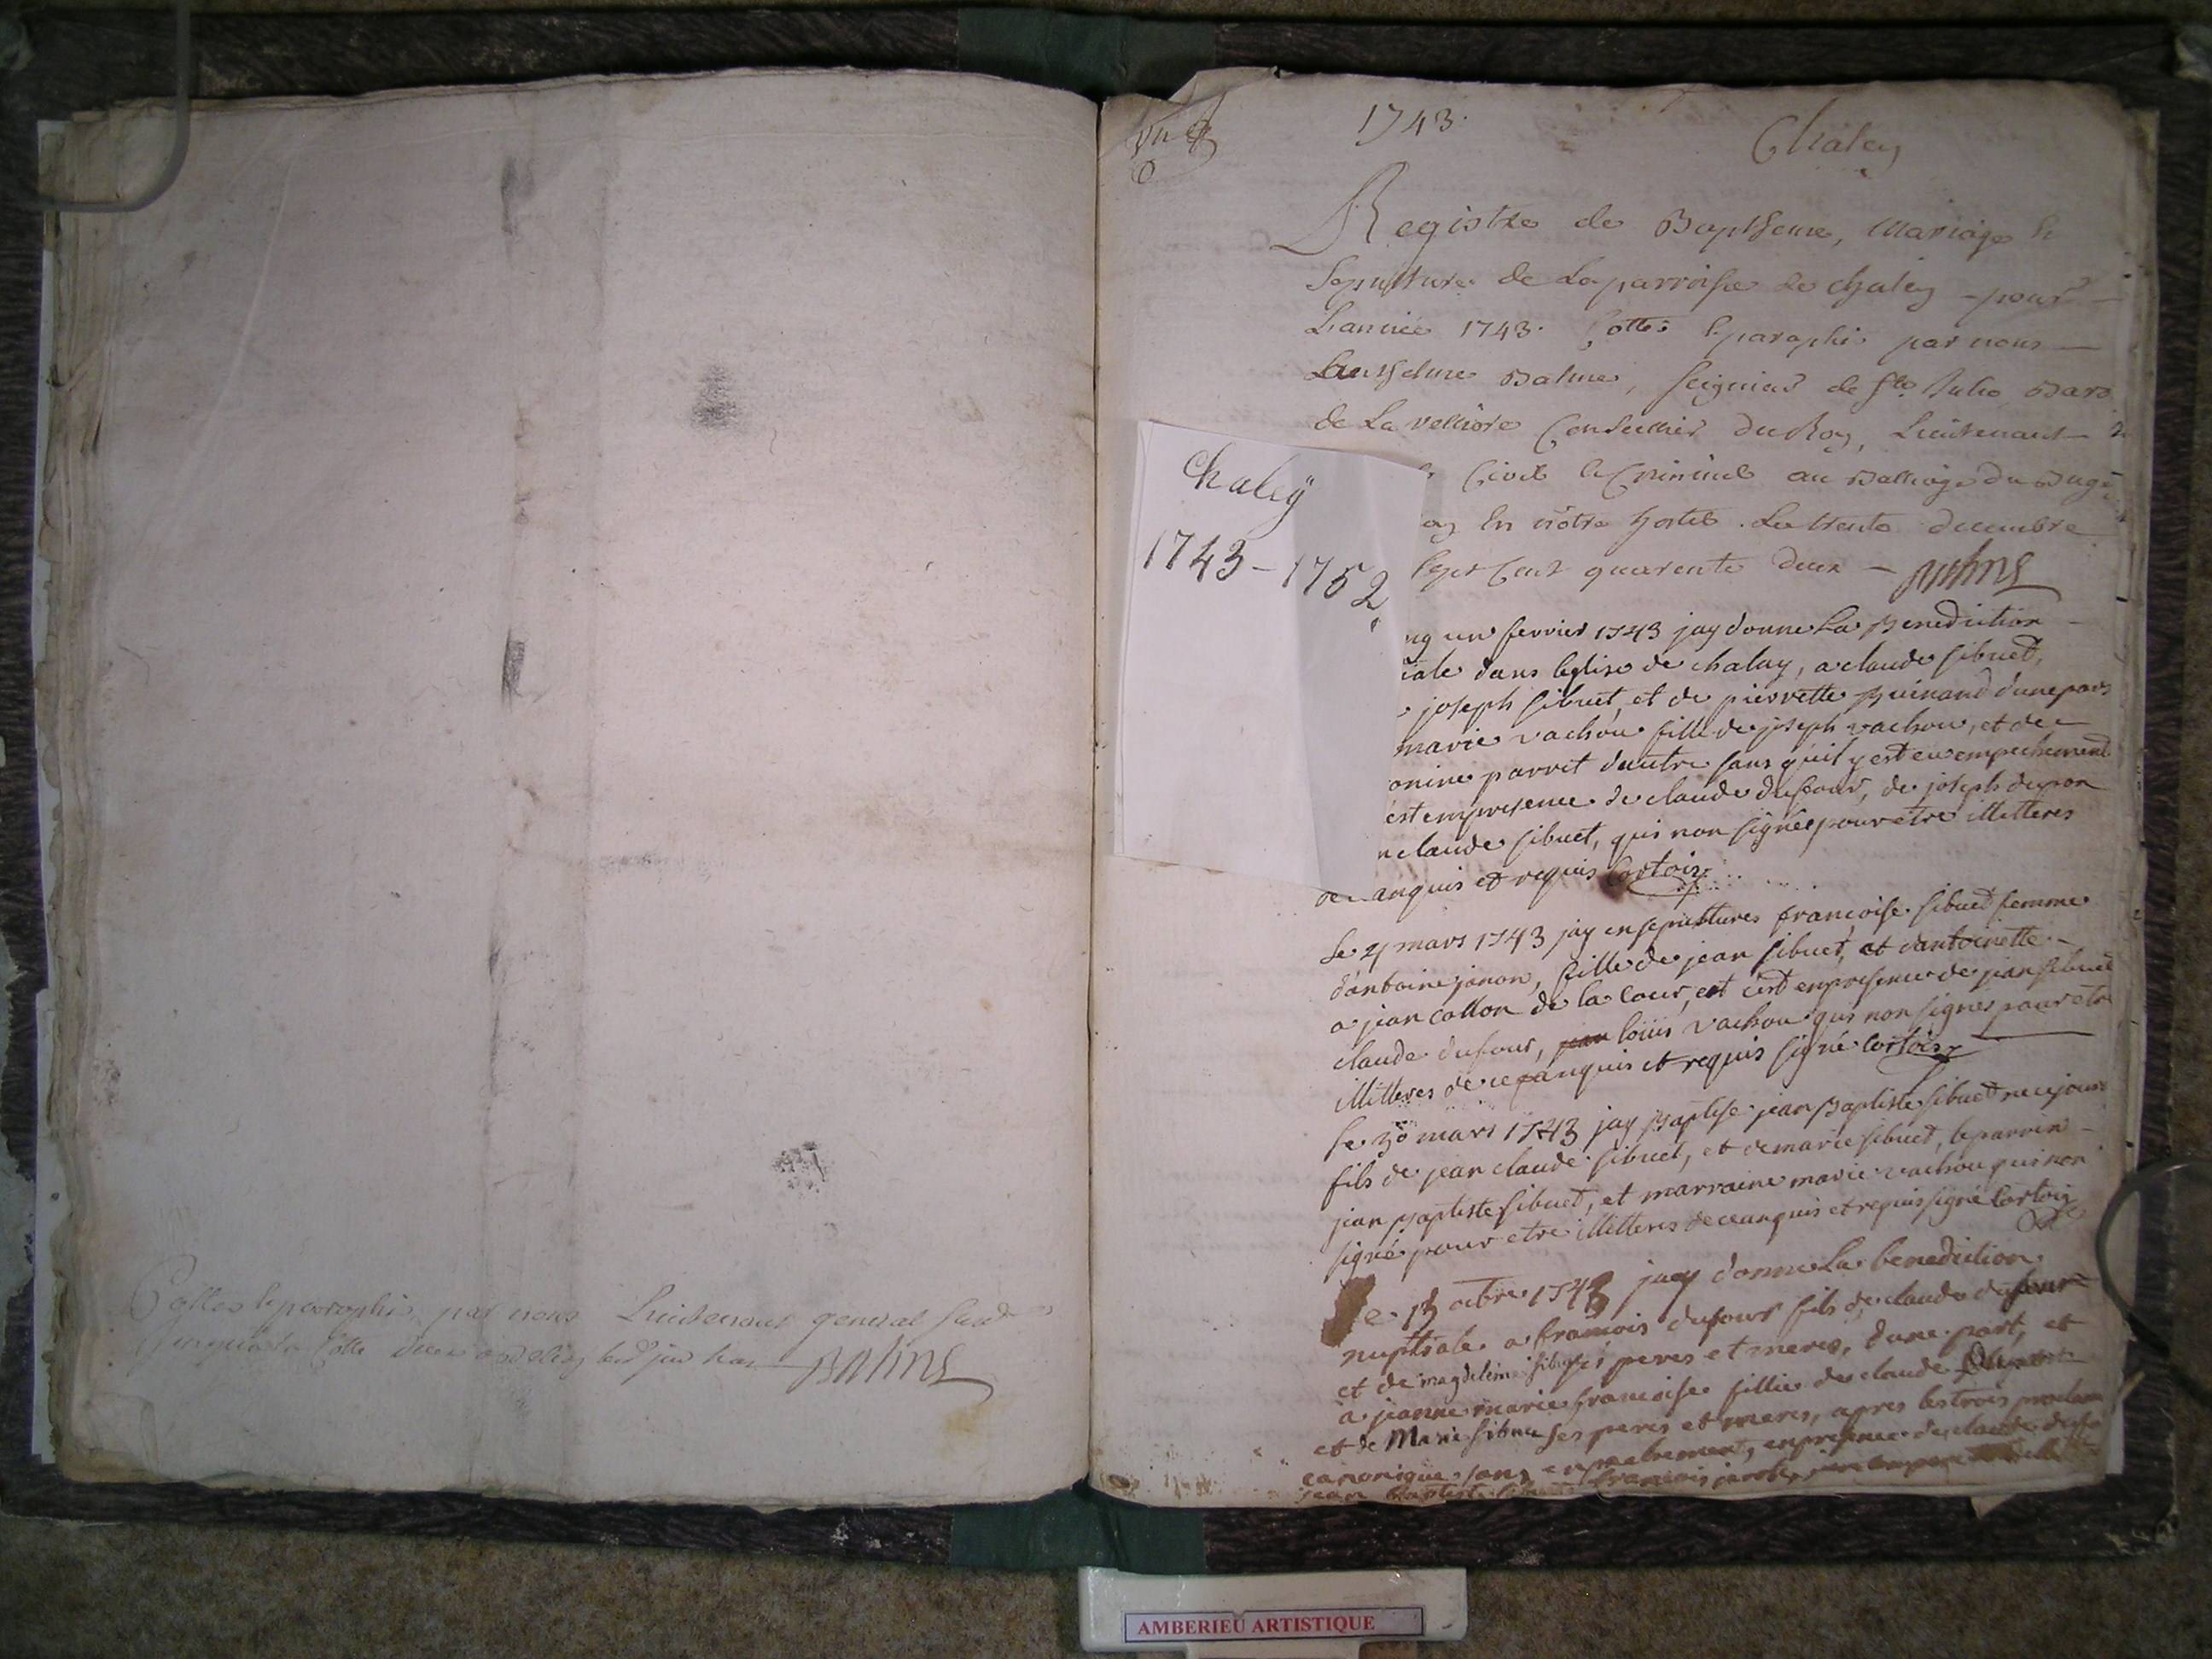 par nous Lieutenant general
Balme
1743.
Chaley
Registre de Baptseme, Mariage &
Sepulture de La parroisse de Chaley - pour -
L'année 1743. Cotté & paraphé par nous -
Balme, seigneur de Ste. Julie
de La velliere Conseiller du Roy, Lieutenant
Civil & Criminel au Balliage du Buge
En nôtre hostel. Le trente decembre
sept Cent quarente deux - Balme
Chaleÿ
1743-1752
un fevrier 1743 jay donne La Benediction -
iale dans leglise de chaley, a claude sibuet,
joseph sibuet, et de pierrette Guinand dune part
marie vachou fille de joseph vachou, et de -
onine parret dautre sans quil y est eu empechement
est empresence de claude dufour, de joseph dupon
claude sibuet, qui non signée pour etre illitteres
anquis et requis Cortois
Le 21 mars 1743 jay ensepultures francoise sibuet femme
dantoine janon, fille de jean sibuet, et dantoinette -
a jean collon de la cour, et cest enpresence de jean sibuet
claude dufour, louis vachou qui non signes pour etre
illitteres de ce anquis et requis signé Cortois
Le 30 mars 1743 jay Baptise jean Baptiste sibuet ne ce jour
fils de jean claude sibuet, et de marie sibuet, le parrein -
jean Baptiste sibuet, et marraine marie vachou qui non
signé pour etre illitteres de ce anquis et requis signé Cortois
Le 13 octbre 1743 jay donne La benediction
nuptiale a francois dufour fils de claude dufour
et de magdeleine sibuet peres et meres, dune part, et
a jeanne marie francoise fillie de claude
et de Marie sibuet ses peres et meres, apres les trois proclam
canonique sans empechement, enpresence de claude dufo
jean Baptiste francois
AMBERIEU ARTISTIQUE